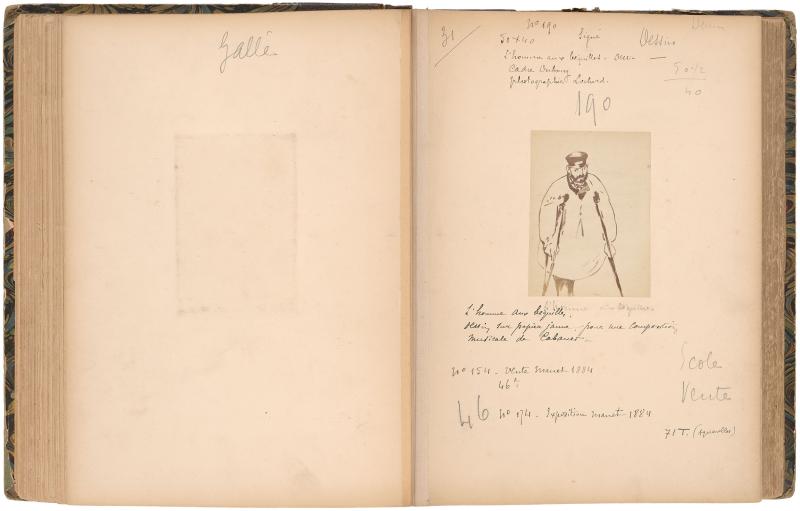 Gallé
31
No 190
50 x 40
Signé
Dessins
L'homme aux béquilles -
Cadre
photographié Lochard.
50 1/2
40
190
L'homme aux béquilles.
Dessin sur papier jaune, pour une composition
musicale de Cabaner -
No 154 - Vente Manet 1884
46 f
46
No 174 - Exposition Manet 1884
Ecole
Vente
71 T. (Aquarelles)